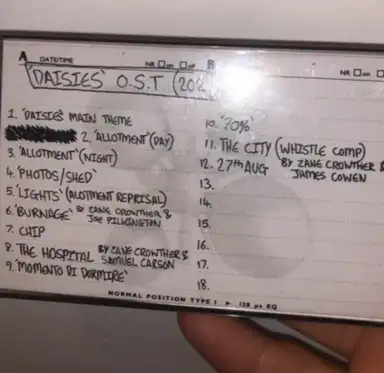 A DATE/TIME NR ☐on ☐off B
NR ☐on
'DAISIES' O.S.T (20
1. 'DAISIES' MAIN THEME
2. 'ALLOTMENT' (DAY)
3. 'ALLOTMENT' (NIGHT)
4. 'PHOTOS/SHED'
5. 'LIGHTS' (ALOTMENT REPRISAL)
6. 'BURNAGE' BY ZANE CROWTHER &
JOE PILKINGTON
7. CHIP
8. THE HOSPITAL BY ZANE CROWTHER &
SAMUEL CARSON
9. 'MOMENTO DI DORMIRE'
10. '20%'
11. THE CITY (WHISTLE COMP)
12. 27th AUG BY ZANE CROWTHER &
JAMES COWEN
13.
14.
15.
16.
17.
18.
NORMAL POSITION TYPE I ▶ 120 µs EQ